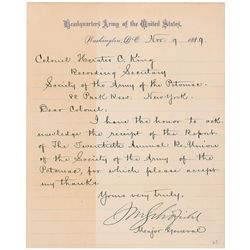 Headquarters Army of the United States,
Washington, D.C. Nov 9 1889.
Colonel Horatio C. King
Recording Secretary
Society of the Army of the Potomac
Park Row. New York.
Dear Colonel:
I have the honor to ack
nowledge the receipt of the Report
of The Twentieth Annual Re-Union
of the Society of the Army of the
Potomac, for which please accept
my thanks.
Yours very truly,
J M Schofield
Major General